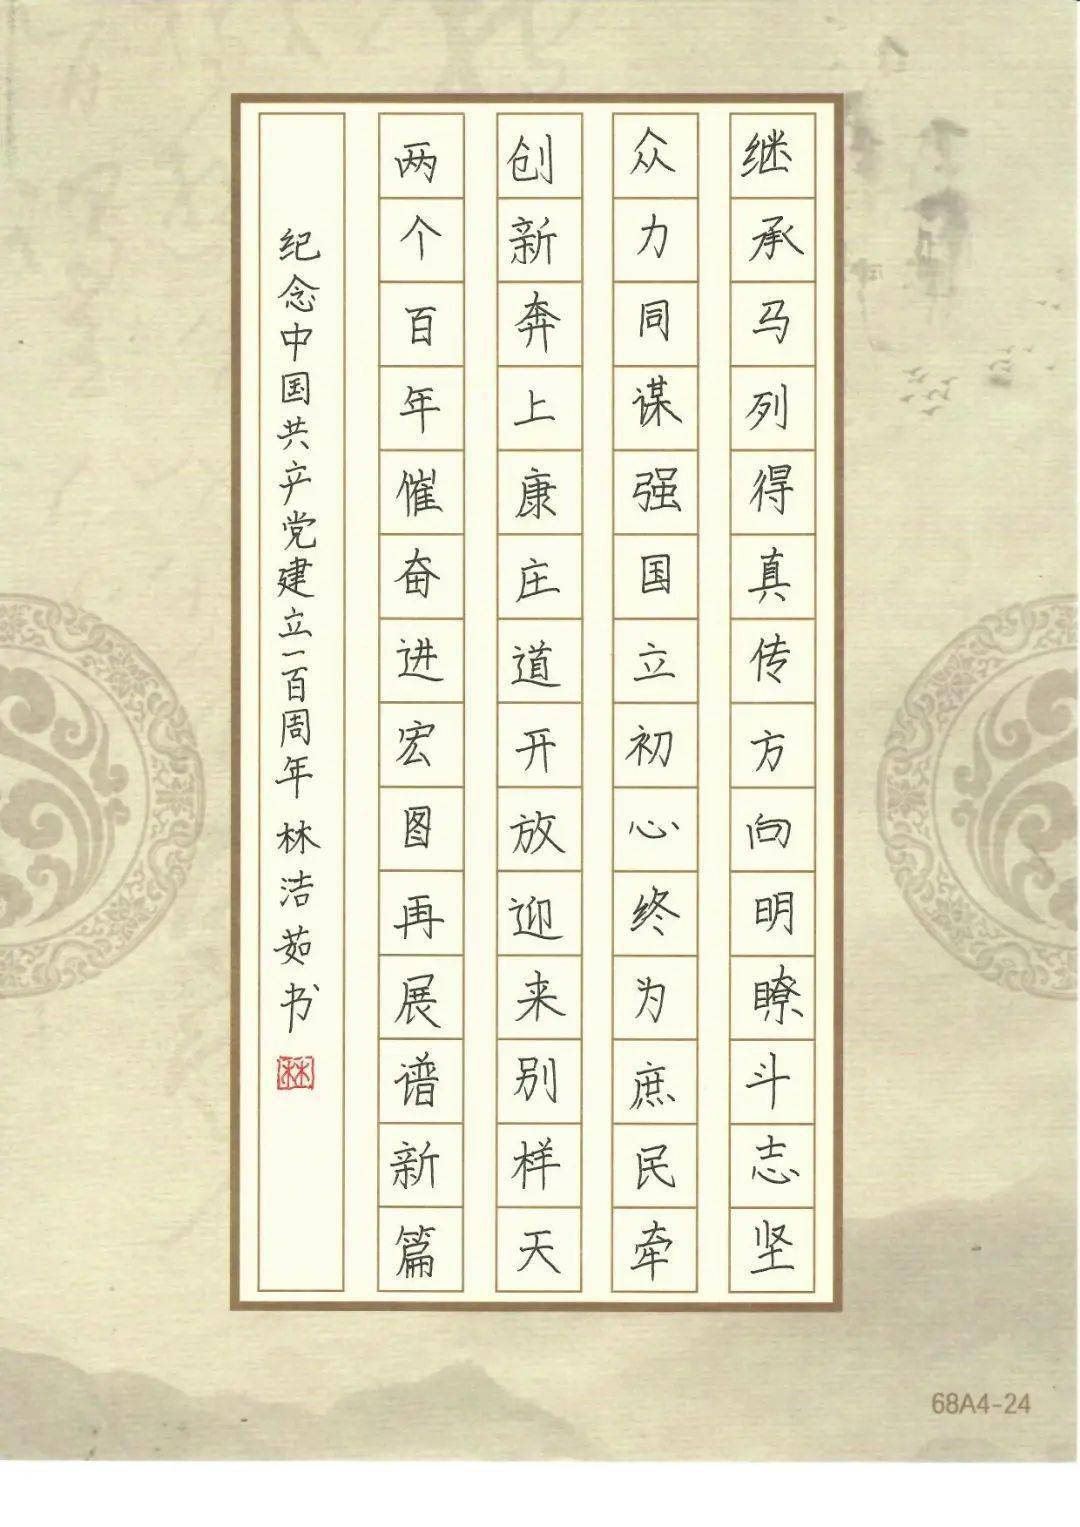 继承马列得真传方向明瞭斗志坚
众力同谋强国立初心终为庶民牵
创新奔上康庄道开放迎来别样天
两个百年催奋进宏图再展谱新篇
纪念中国共产党建立一百周年 林洁茹书
林
68A4-24